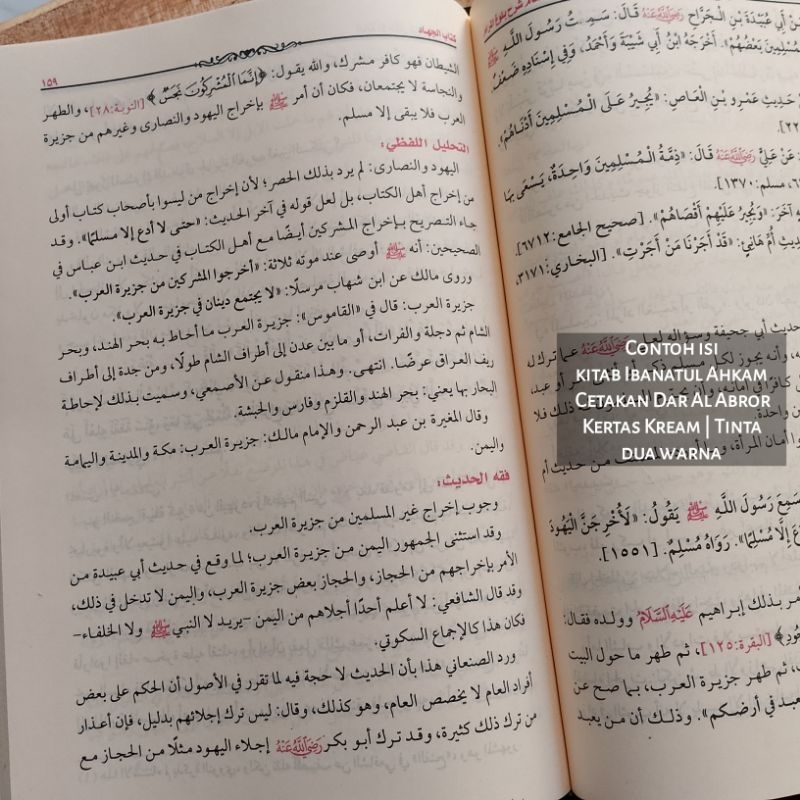 عن أبي عبيدة بن الجراح رَضِيَ اللَّهُ عَنْهُ قَالَ: سَمِعْتُ رَسُولَ اللَّهِ ﷺ
الْمُسْلِمِينَ بَعْضُهُمْ». أَخْرَجَهُ ابْنُ أَبِي شَيْبَةَ وَأَحْمَدُ، وَفِي إِسْنَادِهِ ضَعْفٌ
حَدِيثِ عَمْرِو بْنِ الْعَاصِ: «يُجِيرُ عَلَى الْمُسْلِمِينَ أَدْنَاهُمْ».
عَنْ عَلِيٍّ رَضِيَ اللَّهُ عَنْهُ قَالَ: «ذِمَّةُ الْمُسْلِمِينَ وَاحِدَةٌ، يَسْعَى بِهَا
مسلم: ١٣٧٠].
آخَرَ: «وَيُجِيرُ عَلَيْهِمْ أَقْصَاهُمْ». [صحيح الجامع: ٦٧١٢].
أُمِّ هَانِئٍ: «قَدْ أَجَرْنَا مَنْ أَجَرْتِ». [البخاري: ٣١٧١،
حديث أبي جحيفة وسؤاله لعلي رَضِيَ اللَّهُ عَنْهُ عما ترك له
سَمِعَ رَسُولَ اللَّهِ ﷺ يَقُولُ: «لَأُخْرِجَنَّ الْيَهُودَ
إِلَّا مُسْلِمًا». رَوَاهُ مُسْلِمٌ. [١٥٥١].
بذلك إبراهيم عَلَيْهِ السَّلَامُ وولده فقال:
[البقرة: ١٢٥]، ثم طهر ما حول البيت
ثم طهر جزيرة العرب، بما صح عن
يعبد في أرضكم». وذلك أن من يعبد
كتاب الجهاد
١٥٩
الشيطان فهو كافر مشرك، والله يقول: ﴿إِنَّمَا الْمُشْرِكُونَ نَجَسٌ﴾ [التوبة: ٢٨]، والطهر
والنجاسة لا يجتمعان، فكان أن أمر ﷺ بإخراج اليهود والنصارى وغيرهم من جزيرة
العرب فلا يبقى إلا مسلم.
التحليل اللفظي:
اليهود والنصارى: لم يرد بذلك الحصر؛ لأن إخراج من ليسوا بأصحاب كتاب أولى
من إخراج أهل الكتاب، بل لعل قوله في آخر الحديث: «حتى لا أدع إلا مسلمًا». وقد
جاء التصريح بإخراج المشركين أيضًا مع أهل الكتاب في حديث ابن عباس في
الصحيحين: أنه ﷺ أوصى عند موته ثلاثة: «أخرجوا المشركين من جزيرة العرب».
وروى مالك عن ابن شهاب مرسلًا: «لا يجتمع دينان في جزيرة العرب».
جزيرة العرب: قال في «القاموس»: جزيرة العرب ما أحاط به بحر الهند، وبحر
الشام ثم دجلة والفرات، أو ما بين عدن إلى أطراف الشام طولًا، ومن جدة إلى أطراف
ريف العراق عرضًا. انتهى. وهذا منقول عن الأصمعي، وسميت بذلك لإحاطة
البحار بها يعني: بحر الهند والقلزم وفارس والحبشة.
وقال المغيرة بن عبد الرحمن والإمام مالك: جزيرة العرب: مكة والمدينة واليمامة
واليمن.
فقه الحديث:
وجوب إخراج غير المسلمين من جزيرة العرب.
وقد استثنى الجمهور اليمن من جزيرة العرب؛ لما وقع في حديث أبي عبيدة من
الأمر بإخراجهم من الحجاز، والحجاز بعض جزيرة العرب، واليمن لا تدخل في ذلك،
وقد قال الشافعي: لا أعلم أحدًا أجلاهم من اليمن -يريد لا النبي ﷺ ولا الخلفاء-
فكان هذا كالإجماع السكوتي.
ورد الصنعاني هذا بأن الحديث لا حجة فيه لما تقرر في الأصول أن الحكم على بعض
أفراد العام لا يخصص العام، وهو كذلك، وقال: ليس ترك إجلائهم بدليل، فإن أعذار
من ترك ذلك كثيرة، وقد ترك أبو بكر رَضِيَ اللَّهُ عَنْهُ إجلاء اليهود مثلًا من الحجاز مع
Contoh isi
kitab Ibanatul Ahkam
Cetakan Dar Al Abror
Kertas Kream | Tinta
dua warna